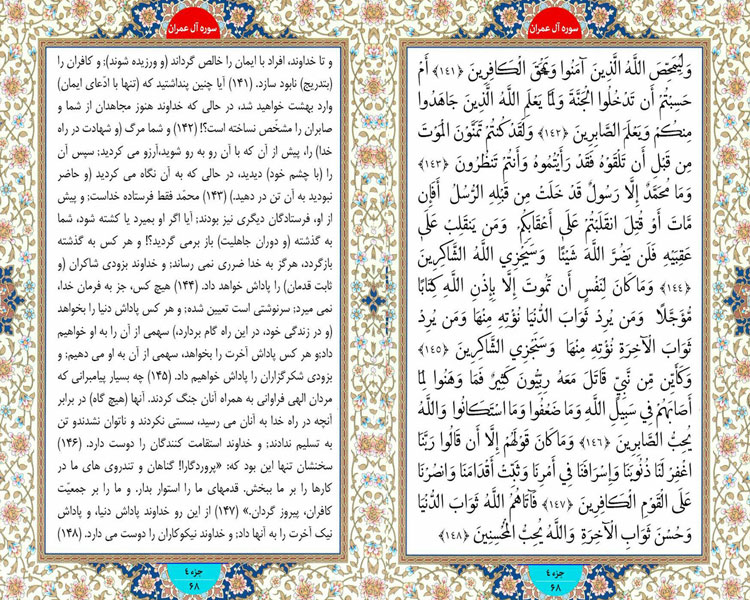 سوره آل عمران
وَلِيُمَحِّصَ اللَّهُ الَّذِينَ آمَنُوا وَيَمْحَقَ الْكَافِرِينَ ﴿١٤١﴾ أَمْ
حَسِبْتُمْ أَن تَدْخُلُوا الْجَنَّةَ وَلَمَّا يَعْلَمِ اللَّهُ الَّذِينَ جَاهَدُوا
مِنكُمْ وَيَعْلَمَ الصَّابِرِينَ ﴿١٤٢﴾ وَلَقَدْ كُنتُمْ تَمَنَّوْنَ الْمَوْتَ
مِن قَبْلِ أَن تَلْقَوْهُ فَقَدْ رَأَيْتُمُوهُ وَأَنتُمْ تَنظُرُونَ ﴿١٤٣﴾
وَمَا مُحَمَّدٌ إِلَّا رَسُولٌ قَدْ خَلَتْ مِن قَبْلِهِ الرُّسُلُ أَفَإِن
مَّاتَ أَوْ قُتِلَ انقَلَبْتُمْ عَلَى أَعْقَابِكُمْ وَمَن يَنقَلِبْ عَلَىَ
عَقِبَيْهِ فَلَن يَضُرَّ اللَّهَ شَيْئًا وَسَيَجْزِي اللَّهُ الشَّاكِرِينَ
﴿١٤٤﴾ وَمَا كَانَ لِنَفْسٍ أَنْ تَمُوتَ إِلَّا بِإِذْنِ اللَّهِ كِتَابًا
مُّؤَجَّلًا وَمَن يُرِدْ ثَوَابَ الدُّنْيَا نُؤْتِهِ مِنْهَا وَمَن يُرِدْ
ثَوَابَ الْآخِرَةِ نُؤْتِهِ مِنْهَا وَسَنَجْزِي الشَّاكِرِينَ ﴿١٤٥﴾
وَكَأَيِّن مِّن نَّبِيٍّ قَاتَلَ مَعَهُ رِبِّيُّونَ كَثِيرٌ فَمَا وَهَنُوا لِمَا
أَصَابَهُمْ فِي سَبِيلِ اللَّهِ وَمَا ضَعُفُوا وَمَا اسْتَكَانُوا وَاللَّهُ
يُحِبُّ الصَّابِرِينَ ﴿١٤٦﴾ وَمَا كَانَ قَوْلَهُمْ إِلَّا أَن قَالُوا رَبَّنَا
اغْفِرْ لَنَا ذُنُوبَنَا وَإِسْرَافَنَا فِي أَمْرِنَا وَثَبِّتْ أَقْدَامَنَا وَانصُرْنَا
عَلَى الْقَوْمِ الْكَافِرِينَ ﴿١٤٧﴾ فَآتَاهُمُ اللَّهُ ثَوَابَ الدُّنْيَا
وَحُسْنَ ثَوَابِ الْآخِرَةِ وَاللَّهُ يُحِبُّ الْمُحْسِنِينَ ﴿١٤٨﴾
جزء ٤
٦٨
سوره آل عمران
و تا خداوند، افراد با ایمان را خالص گرداند (و ورزیده شوند)؛ و کافران را
(بتدریج) نابود سازد. (۱۴۱) آیا چنین پنداشتید که (تنها با ادّعای ایمان)
وارد بهشت خواهید شد، در حالی که خداوند هنوز مجاهدان از شما و
صابران را مشخّص نساخته است؟! (۱۴۲) و شما مرگ (و شهادت در راه
خدا) را، پیش از آن که با آن رو به رو شوید،آرزو می کردید؛ سپس آن
را (با چشم خود) دیدید، در حالی که به آن نگاه می کردید (و حاضر
نبودید به آن تن در دهید.) (۱۴۳) محمّد فقط فرستاده خداست؛ و پیش
از او، فرستادگان دیگری نیز بودند؛ آیا اگر او بمیرد یا کشته شود، شما
به گذشته (و دوران جاهلیت) باز برمی گردید؟! و هر کس به گذشته
بازگردد، هرگز به خدا ضرری نمی رساند؛ و خداوند بزودی شاکران (و
ثابت قدمان) را پاداش خواهد داد. (۱۴۴) هیچ کس، جز به فرمان خدا،
نمی میرد؛ سرنوشتی است تعیین شده؛ و هر کس پاداش دنیا را بخواهد
(و در زندگی خود، در این راه گام بردارد،) سهمی از آن را به او خواهیم
داد؛و هر کس پاداش آخرت را بخواهد، سهمی از آن به او می دهیم؛ و
بزودی شکرگزاران را پاداش خواهیم داد. (۱۴۵) چه بسیار پیامبرانی که
مردان الهی فراوانی به همراه آنان جنگ کردند. آنها (هیچ گاه) در برابر
آنچه در راه خدا به آنان می رسید، سستی نکردند و ناتوان نشدندو تن
به تسلیم ندادند؛ و خداوند استقامت کنندگان را دوست دارد. (۱۴۶)
سخنشان تنها این بود که: «پروردگارا! گناهان و تندروی های ما در
کارها را بر ما ببخش. قدمهای ما را استوار بدار. و ما را بر جمعیّت
کافران، پیروز گردان.» (۱۴۷) از این رو خداوند پاداش دنیا، و پاداش
نیک آخرت را به آنها داد؛ و خداوند نیکوکاران را دوست می دارد. (۱۴۸)
جزء ٤
٦٨